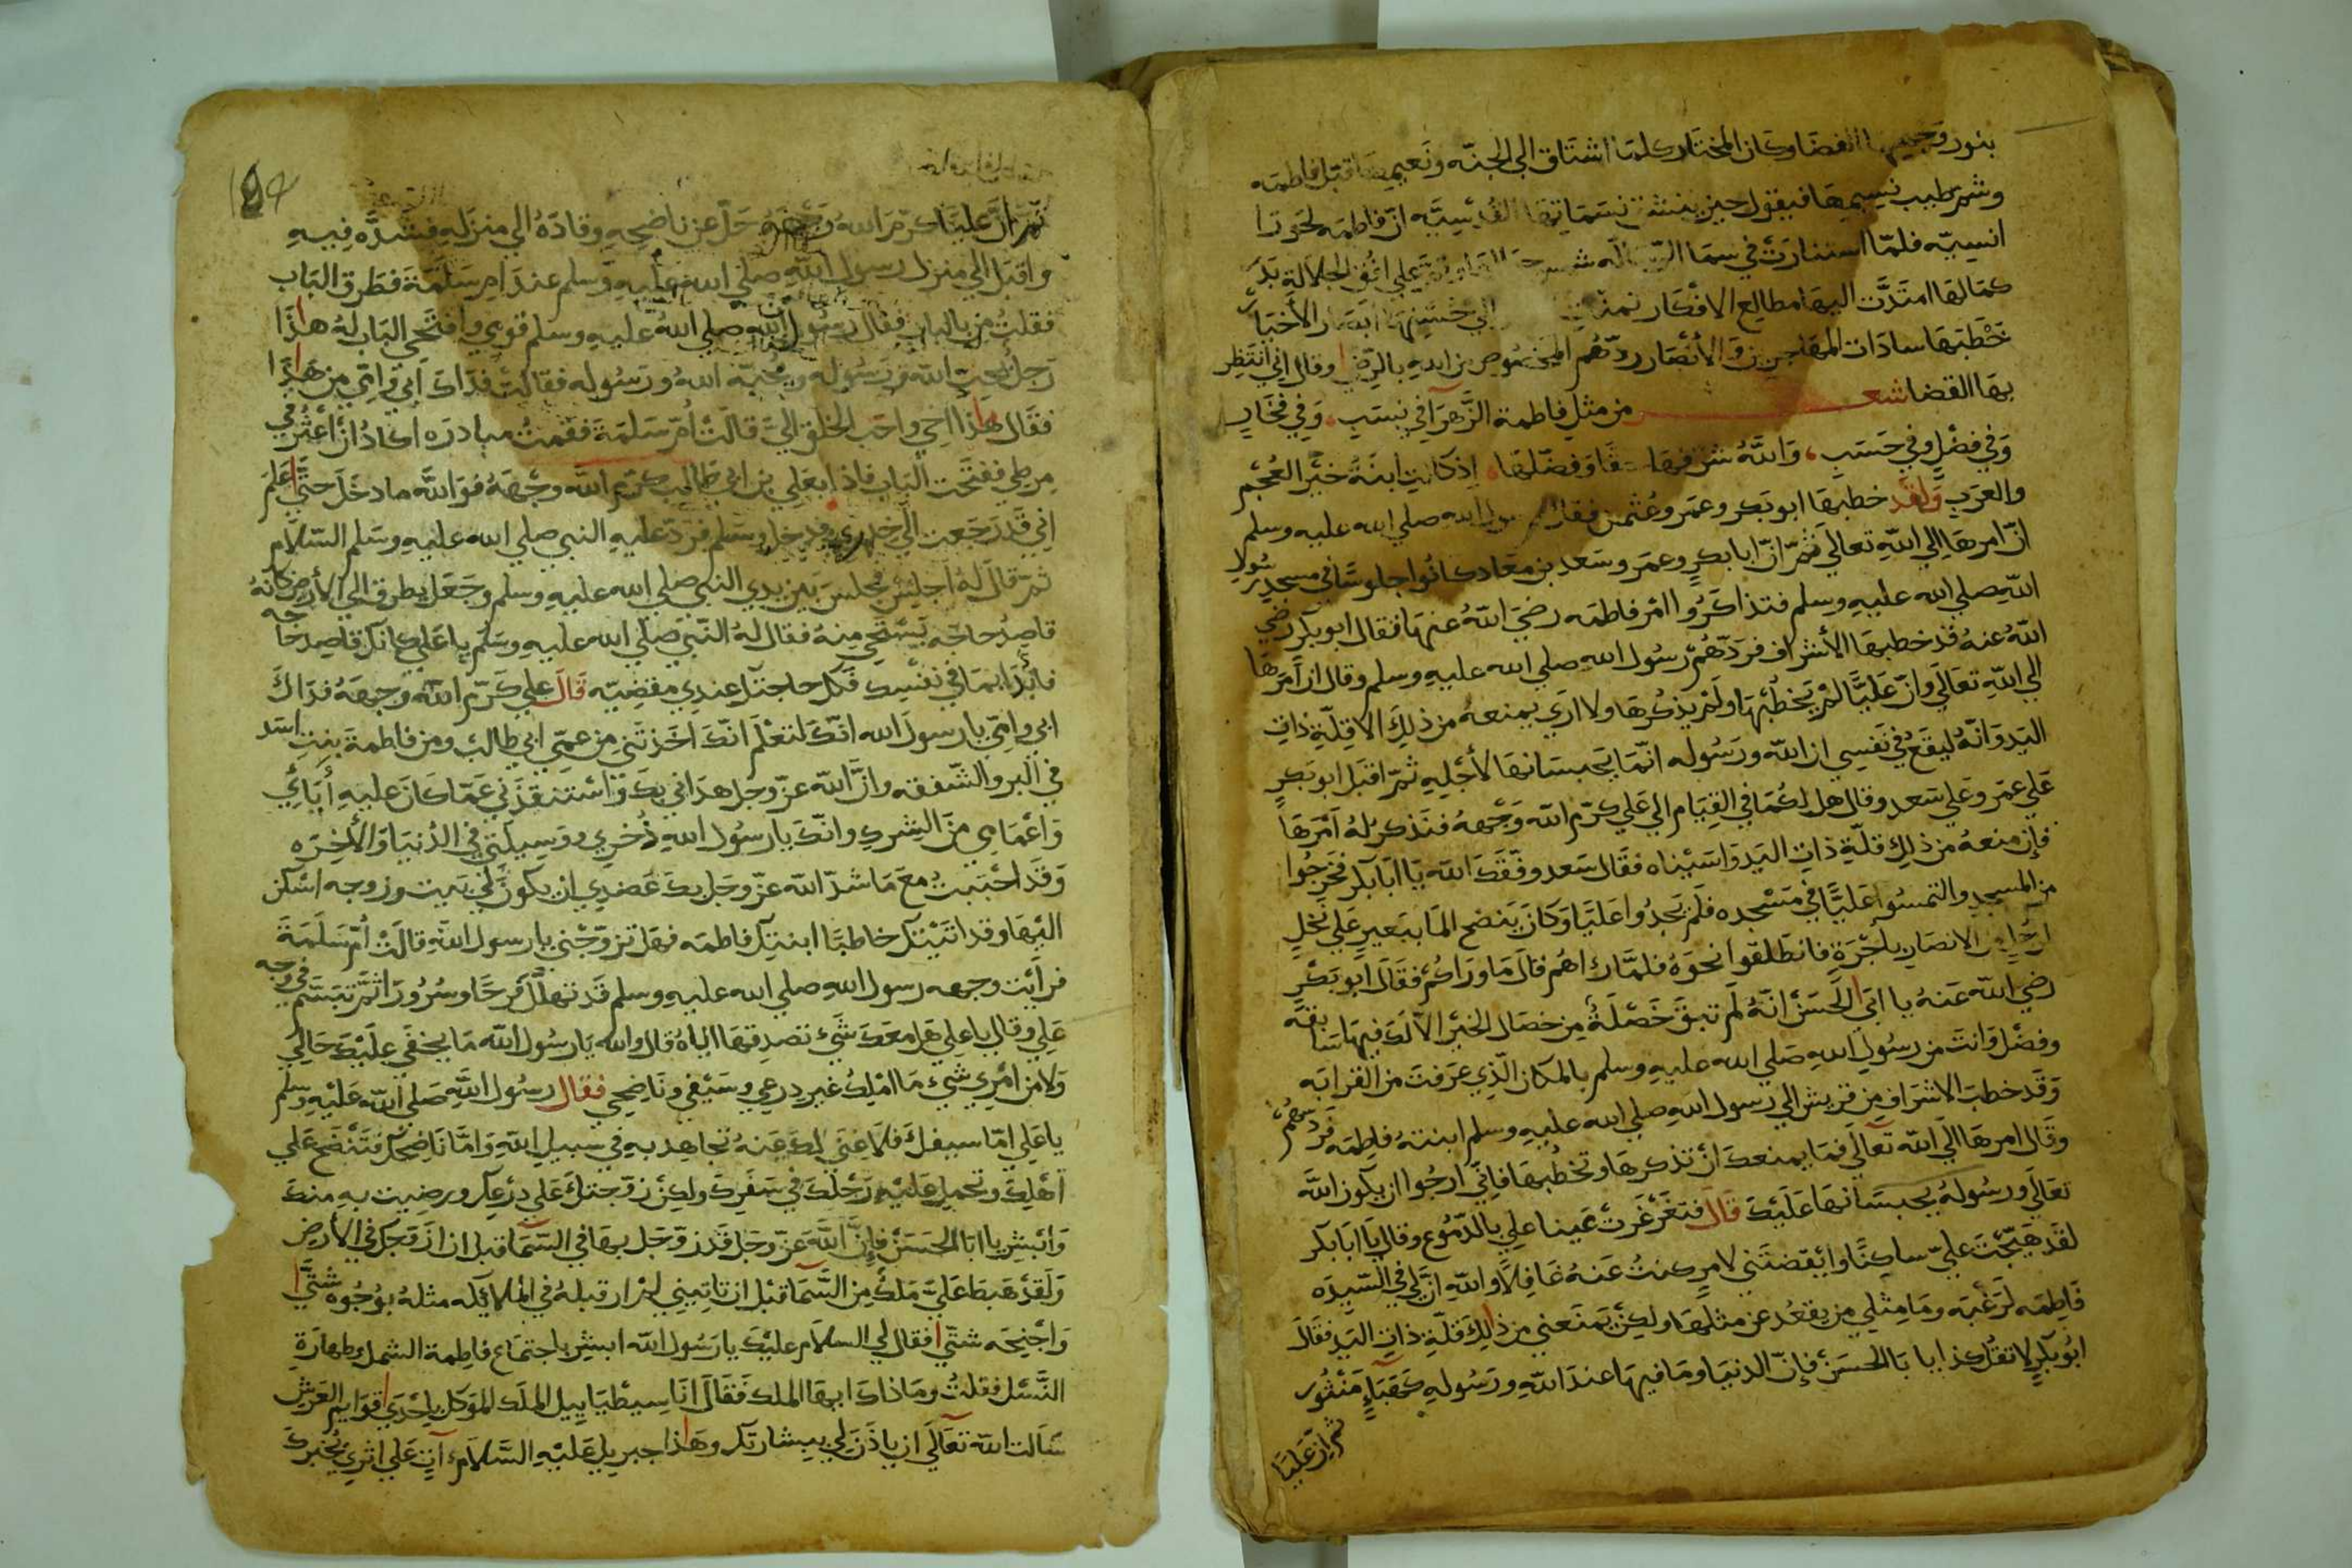 بنور وجهها الفضا وكان المختار كلما اشتاق الي الجنه ونعيمها قبل فاطمه
وشم طيب نسيمها فيقول حين ينشق نسماتها القدسيه ان فاطمه لحورا
انسيه فلما استنارت في سما الرساله شمس علي افق الجلالة بدر
كمالها امتدت اليها مطالع الافكار الي حسنها ابصار الأخيار
خطبتها سادات المهاجرين والأنصار ردهم المخصوص من الله بالرضي وقال اني انتظر
بها القضا شعر من مثل فاطمة الزهرا في نسب، وفي فخار
وفي فضل وفي حسب، والله شرفها حقا وفضلها، اذ كانت ابنة خير العجم
والعرب ولقد خطبها ابو بكر وعمر وعثمن فقال رسول الله صلي الله عليه وسلم
ان امرها الي الله تعالي ثم ان ابا بكر وعمر وسعد بن معاد كانوا جلوسا في مسجد رسول
الله صلي الله عليه وسلم فتذاكروا امر فاطمه رضي الله عنها فقال ابو بكر رضي
الله عنه قد خطبها الأشراف فردهم رسول الله صلي الله عليه وسلم وقال ان أمرها
الي الله تعالي وان عليا لم يخطبها ولم يذكرها ولا اري يمنعه من ذلك الا قلة ذات
اليد وانه ليقع في نفسي ان الله ورسوله انما يحبسانها لأجله ثم اقبل ابو بكر
علي عمر وعلي سعد وقال هل لكما في القيام الي علي كرم الله وجهه فنذكر له أمرها
فإن منعه من ذلك قلة ذات اليد واسيناه فقال سعد وفقك الله يا ابا بكر فخرجوا
من المسجد والتمسوا عليا في مسجده فلم يجدوا عليا وكان ينضح الما ببعير علي نخل
رجل من الانصار بأجرة فانطلقوا نحوه فلما راهم قال ما وراكم فقال ابو بكر
رضي الله عنه يا ابي الحسن انه لم تبق خصلة من خصال الخير الا لك فيها سابقة
وفضل وانت من رسول الله صلي الله عليه وسلم بالمكان الذي عرفت من القرابه
وقد خطب الاشراف من قريش الي رسول الله صلي الله عليه وسلم ابنته فاطمه فردهم
وقال امرها الي الله تعالي فما يمنعك أن تذكرها وتخطبها فاني ارجوا ان يكون الله
تعالي ورسوله يحبسانها عليك قال فتغرغرت عينا علي بالدموع وقال يا ابا بكر
لقد هيجت علي ساكنا وأيقضتني لامر كنت عنه غافلا والله ان لي في السيده
فاطمه لرغبه وما مثلي من يقعد عن مثلها ولكن يمنعني من ذلك قلة ذات اليد فقال
ابو بكر لا تقل كذا يا ابا الحسن فإن الدنيا وما فيها عند الله ورسوله كهباء منثور
ثم ان عليا
ثم ان عليا كرم الله وجهه حل عن ناضحه وقاده الي منزله فشده فيه
واقبل الي منزل رسول الله صلي الله عليه وسلم عند ام سلمة فطرق الباب
فقلت من بالباب فقال رسول الله صلي الله عليه وسلم قومي وافتحي الباب له هذا
رجل يحب الله ورسوله ويحبه الله ورسوله فقالت فداك ابي وامي من هذا
فقال هذا اخي واحب الخلق الي قالت أم سلمة فقمت مبادره اكاد أن أعثر في
مرطي ففتحت الباب فاذا بعلي بن ابي طالب كرم الله وجهه فوالله ما دخل حتي علم
اني قد رجعت الي خدري فدخل وسلم فرد عليه النبي صلي الله عليه وسلم السلام
ثم قال له اجلس فجلس بين يدي النبي صلي الله عليه وسلم وجعل يطرق الي الأرض كأنه
قاصد حاجه يستحي منه فقال له النبي صلي الله عليه وسلم يا علي كانك قاصد حاجه
فابدا بما في نفسك فكل حاجتك عندي مقضيه قال علي كرم الله وجهه فداك
ابي وامي يا رسول الله انك لتعلم انك اخذتني من عمي ابي طالب ومن فاطمة بنت اسد
في البر والشفقه وان الله عز وجل هداني بك واستنقذني عما كان عليه أبائي
واعمامي من الشرك وانك يا رسول الله ذخري ووسيلتي في الدنيا والأخره
وقد احببت مع ما شد الله عز وجل بك عضدي ان يكون لي بيت وزوجه اسكن
اليها وقد اتيتك خاطبا ابنتك فاطمه فهل تزوجني يا رسول الله قالت أم سلمة
فرأيت وجهه رسول الله صلي الله عليه وسلم قد تهلل فرحا وسرورا ثم تبسم في وجه
علي وقال يا علي هل معك شيء تصدقها اياه قال والله يا رسول الله ما يخفي عليك حالي
ولا من امري شيء ما املك غير درعي وسيفي وناضحي فقال رسول الله صلي الله عليه وسلم
يا علي اما سيفك فلا غني لك عنه تجاهد به في سبيل الله واما ناضحك فتنضح علي
اهلك وتحمل عليه رحلك في سفرك ولكن زوجتك علي درعك ورضيت به منك
وابشر يا ابا الحسن فإن الله عز وجل قد زوجك بها في السما قبل ان ازوجك في الأرض
ولقد هبط علي ملك من السما قبل ان تاتيني لم ار قبله في الملائكه مثله بوجوه شتي
واجنحه شتي فقال لي السلام عليك يا رسول الله ابشر باجتماع فاطمة الشمل وطهارة
النسل فقلت وما ذاك ايها الملك فقال انا سيطيابيل الملك الموكل باحدي قوايم العرش
سالت الله تعالي ان ياذن لي ببشارتك وهذا جبريل عليه السلام آت علي اثري يخبرك